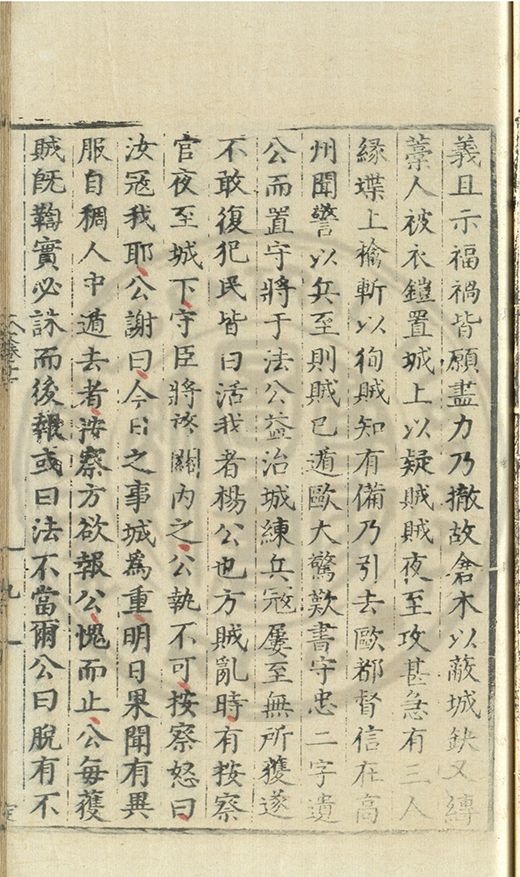 義且示福禍皆願盡力乃撤故倉木以蔽城缺又縛
藁人被衣鎧置城上以疑賊賊夜至攻甚急有三人
緣堞上擒斬以徇賊知有備乃引去歐都督信在高
州聞警以兵至則賊已遁歐大驚歎書守忠二字遺
公而置守將于法公益治城練兵寇屢至無所獲遂
不敢復犯民皆曰活我者楊公也方賊亂時有按察
官夜至城下守臣將啓關內之公執不可按察怒曰
汝寇我耶公謝曰今日之事城爲重明日果聞有異
服自稠人中遁去者按察方欲報公愧而止公每獲
賊既鞫實必誅而後報或曰法不當爾公曰脫有不
九